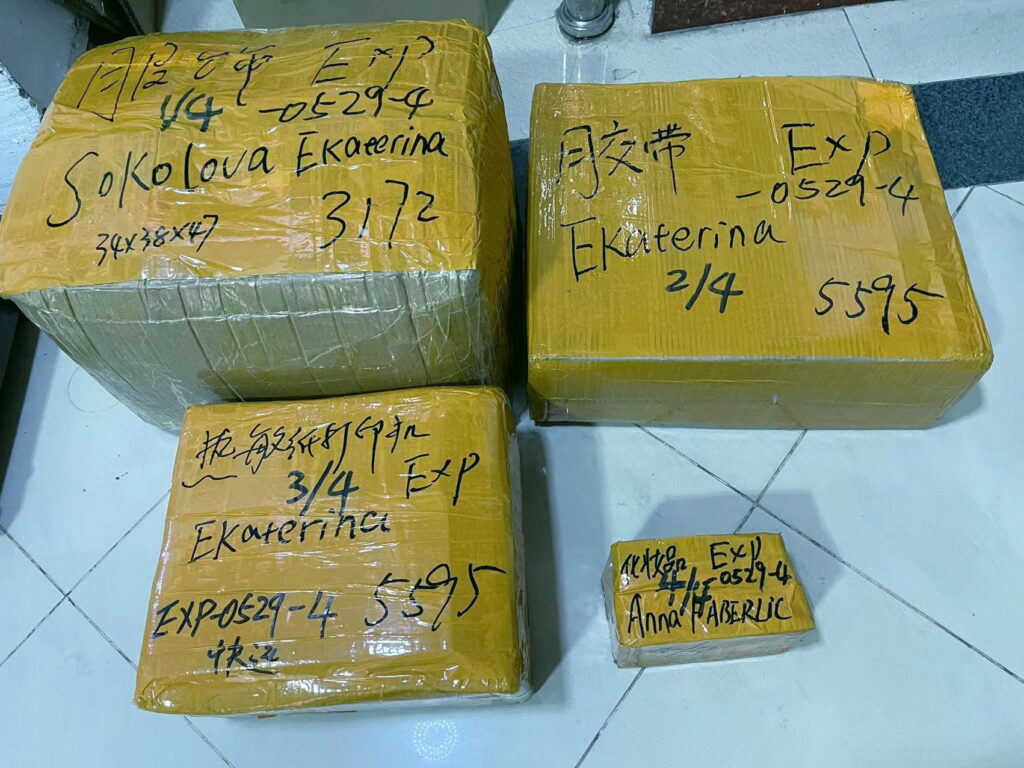 月 Exp
1/4 -0529-4
Sokolova Ekaterina
34x38x47 3172
月胶带 Exp
-0529-4
Ekaterina
2/4
5595
热敏纸打印机
3/4 Exp
Ekaterina
EXP-0529-4 5595
快运
化妆品 Exp
4/4 -0529-4
Anna FABERLIC